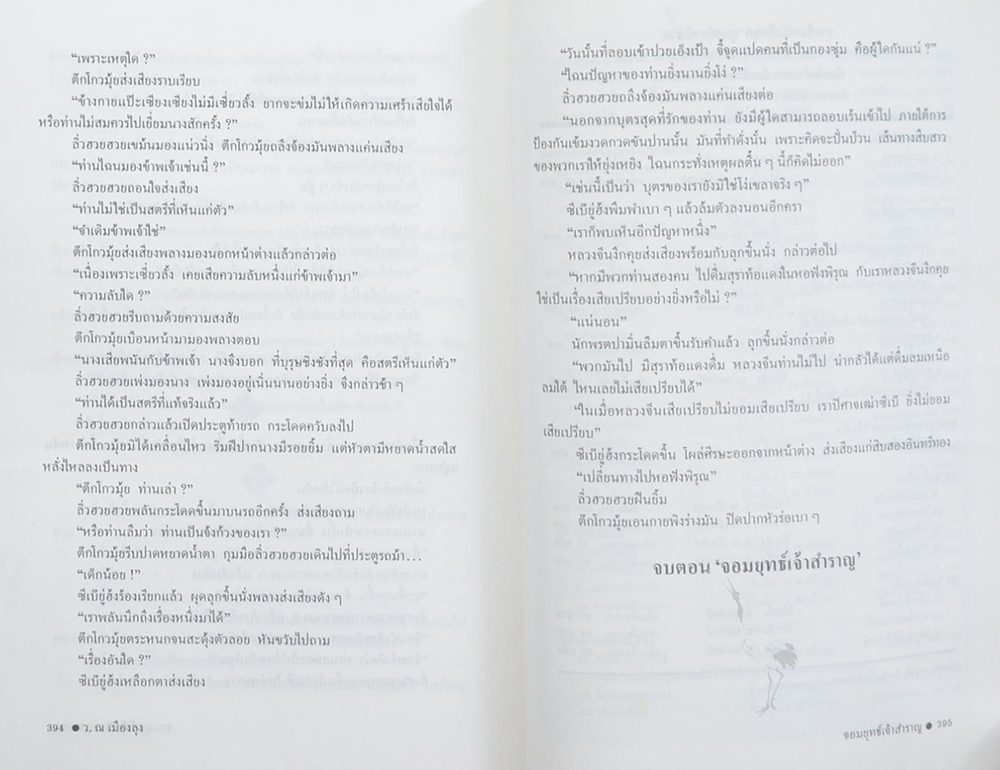 “เพราะเหตุใด ?”
ตึกโกวมุ้ยส่งเสียงราบเรียบ
“ข้างกายแป๊ะเซียงเซียงไม่มีเซี่ยวลั้ง ยากจะข่มไม่ให้เกิดความเศร้าเสียใจได้
หรือท่านไม่สมควรไปเยี่ยมนางสักครั้ง ?”
ลิ่วฮวยฮวยเขม้นมองแน่วนิ่ง ตึกโกวมุ้ยถลึงจ้องมันพลางแค่นเสียง
“ท่านไฉนมองข้าพเจ้าเช่นนี้ ?”
ลิ่วฮวยฮวยถอนใจส่งเสียง
“ท่านไม่ใช่เป็นสตรีที่เห็นแก่ตัว”
“จำเดิมข้าพเจ้าใช่”
ตึกโกวมุ้ยส่งเสียงพลางมองนอกหน้าต่างแล้วกล่าวต่อ
“เนื่องเพราะเซี่ยวลั้ง เคยเสียความลับหนึ่งแก่ข้าพเจ้ามา”
“ความลับใด ?”
ลิ่วฮวยฮวยรีบถามด้วยความสงสัย
ตึกโกวมุ้ยเบือนหน้ามามองพลางตอบ
“นางเสียพนันกับข้าพเจ้า นางจึงบอก ที่บุรุษชิงชังที่สุด คือสตรีเห็นแก่ตัว”
ลิ่วฮวยฮวยเพ่งมองนาง เพ่งมองอยู่เนิ่นนานอย่างยิ่ง จึงกล่าวช้า ๆ
“ท่านได้เป็นสตรีที่แท้จริงแล้ว”
ลิ่วฮวยฮวยกล่าวแล้วเปิดประตูท้ายรถ กระโดดควับลงไป
ตึกโกวมุ้ยมิได้เคลื่อนไหว ริมฝีปากนางมีรอยยิ้ม แต่หัวตามีหยาดน้ำสดใส
หลั่งไหลลงเป็นทาง
“ตึกโกวมุ้ย ท่านเล่า ?”
ลิ่วฮวยฮวยพลันกระโดดขึ้นมาบนรถอีกครั้ง ส่งเสียงถาม
“หรือท่านลืมว่า ท่านเป็นจังก้วงของเรา ?”
ตึกโกวมุ้ยรีบปาดหยาดน้ำตา กุมมือลิ่วฮวยฮวยเดินไปที่ประตูรถม้า…
“เด็กน้อย !”
ซีเบ๊ยู่ฮ้งร้องเรียกแล้ว ผุดลุกขึ้นนั่งพลางส่งเสียงดัง ๆ
“เราพลันนึกถึงเรื่องหนึ่งมาได้”
ตึกโกวมุ้ยตระหนกจนสะดุ้งตัวลอย หันขวับไปถาม
“เรื่องอันใด ?”
ซีเบ๊ยู่ฮ้งเหลือกตาส่งเสียง
394 ● ว. ณ เมืองลุง
“วันนั้นที่ลอบเข้าป่วยเอ็งเป้า จี้จุดแปดคนที่เป็นกองซุ่ม คือผู้ใดกันแน่ ?”
“ไฉนปัญหาของท่านยิ่งนานยิ่งโง่ ?”
ลิ่วฮวยฮวยถลึงจ้องมันพลางแค่นเสียงต่อ
“นอกจากบุตรสุดที่รักของท่าน ยังมีผู้ใดสามารถลอบเร้นเข้าไป ภายใต้การ
ป้องกันเข้มงวดกวดขันปานนั้น มันที่ทำดั่งนั้น เพราะคิดจะปั่นป่วน เส้นทางสืบสาว
ของพวกเราให้ยุ่งเหยิง ไฉนกระทั่งเหตุผลตื้น ๆ นี้ก็คิดไม่ออก”
“เช่นนี้เป็นว่า บุตรของเรายังมิใช่โง่เขลาจริง ๆ”
ซีเบ๊ยู่ฮ้งพึมพำเบา ๆ แล้วล้มตัวลงนอนอีกครา
“เราก็พบเห็นอีกปัญหาหนึ่ง”
หลวงจีนงึกคุยส่งเสียงพร้อมกับลุกขึ้นนั่ง กล่าวต่อไป
“หากมีพวกท่านสองคน ไปดื่มสุราท้อแดงในหอฟังพิรุณ กับเราหลวงจีนงึกคุย
ใช่เป็นเรื่องเสียเปรียบอย่างยิ่งหรือไม่ ?”
“แน่นอน”
นักพรตปามิ่นลืมตาขึ้นรับคำแล้ว ลุกขึ้นนั่งกล่าวต่อ
“พวกมันไป มีสุราท้อแดงดื่ม หลวงจีนท่านไม่ไป น่ากลัวได้แต่ดื่มลมเหนือ
ลมใต้ ไหนเลยไม่เสียเปรียบได้”
“ในเมื่อหลวงจีนเสียเปรียบไม่ยอมเสียเปรียบ เราปีศาจเฒ่าซีเบ๊ ยิ่งไม่ยอม
เสียเปรียบ”
ซีเบ๊ยู่ฮ้งกระโดดขึ้น โผล่ศีรษะออกจากหน้าต่าง ส่งเสียงแก่สิบสองอินทรีทอง
“เปลี่ยนทางไปหอฟังพิรุณ”
ลิ่วฮวยฮวยฝืนยิ้ม
ตึกโกวมุ้ยเอนกายพิงร่างมัน ปิดปากหัวร่อเบา ๆ
จบตอน ‘จอมยุทธ์เจ้าสำราญ’
จอมยุทธ์เจ้าสำราญ ● 395